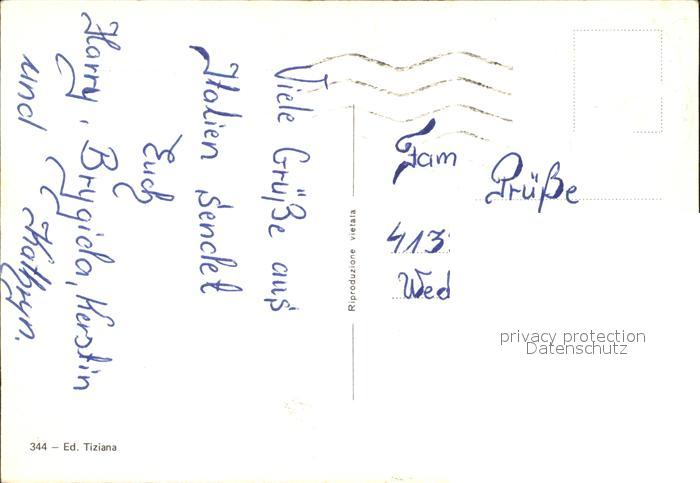 Viele Grüße aus
Italien sendet
Euch
Harry, Brygida, Kerstin
und Kathryn.
Riproduzione vietata
Fam
Prüße
413
Wed
privacy protection
Datenschutz
344 – Ed. Tiziana